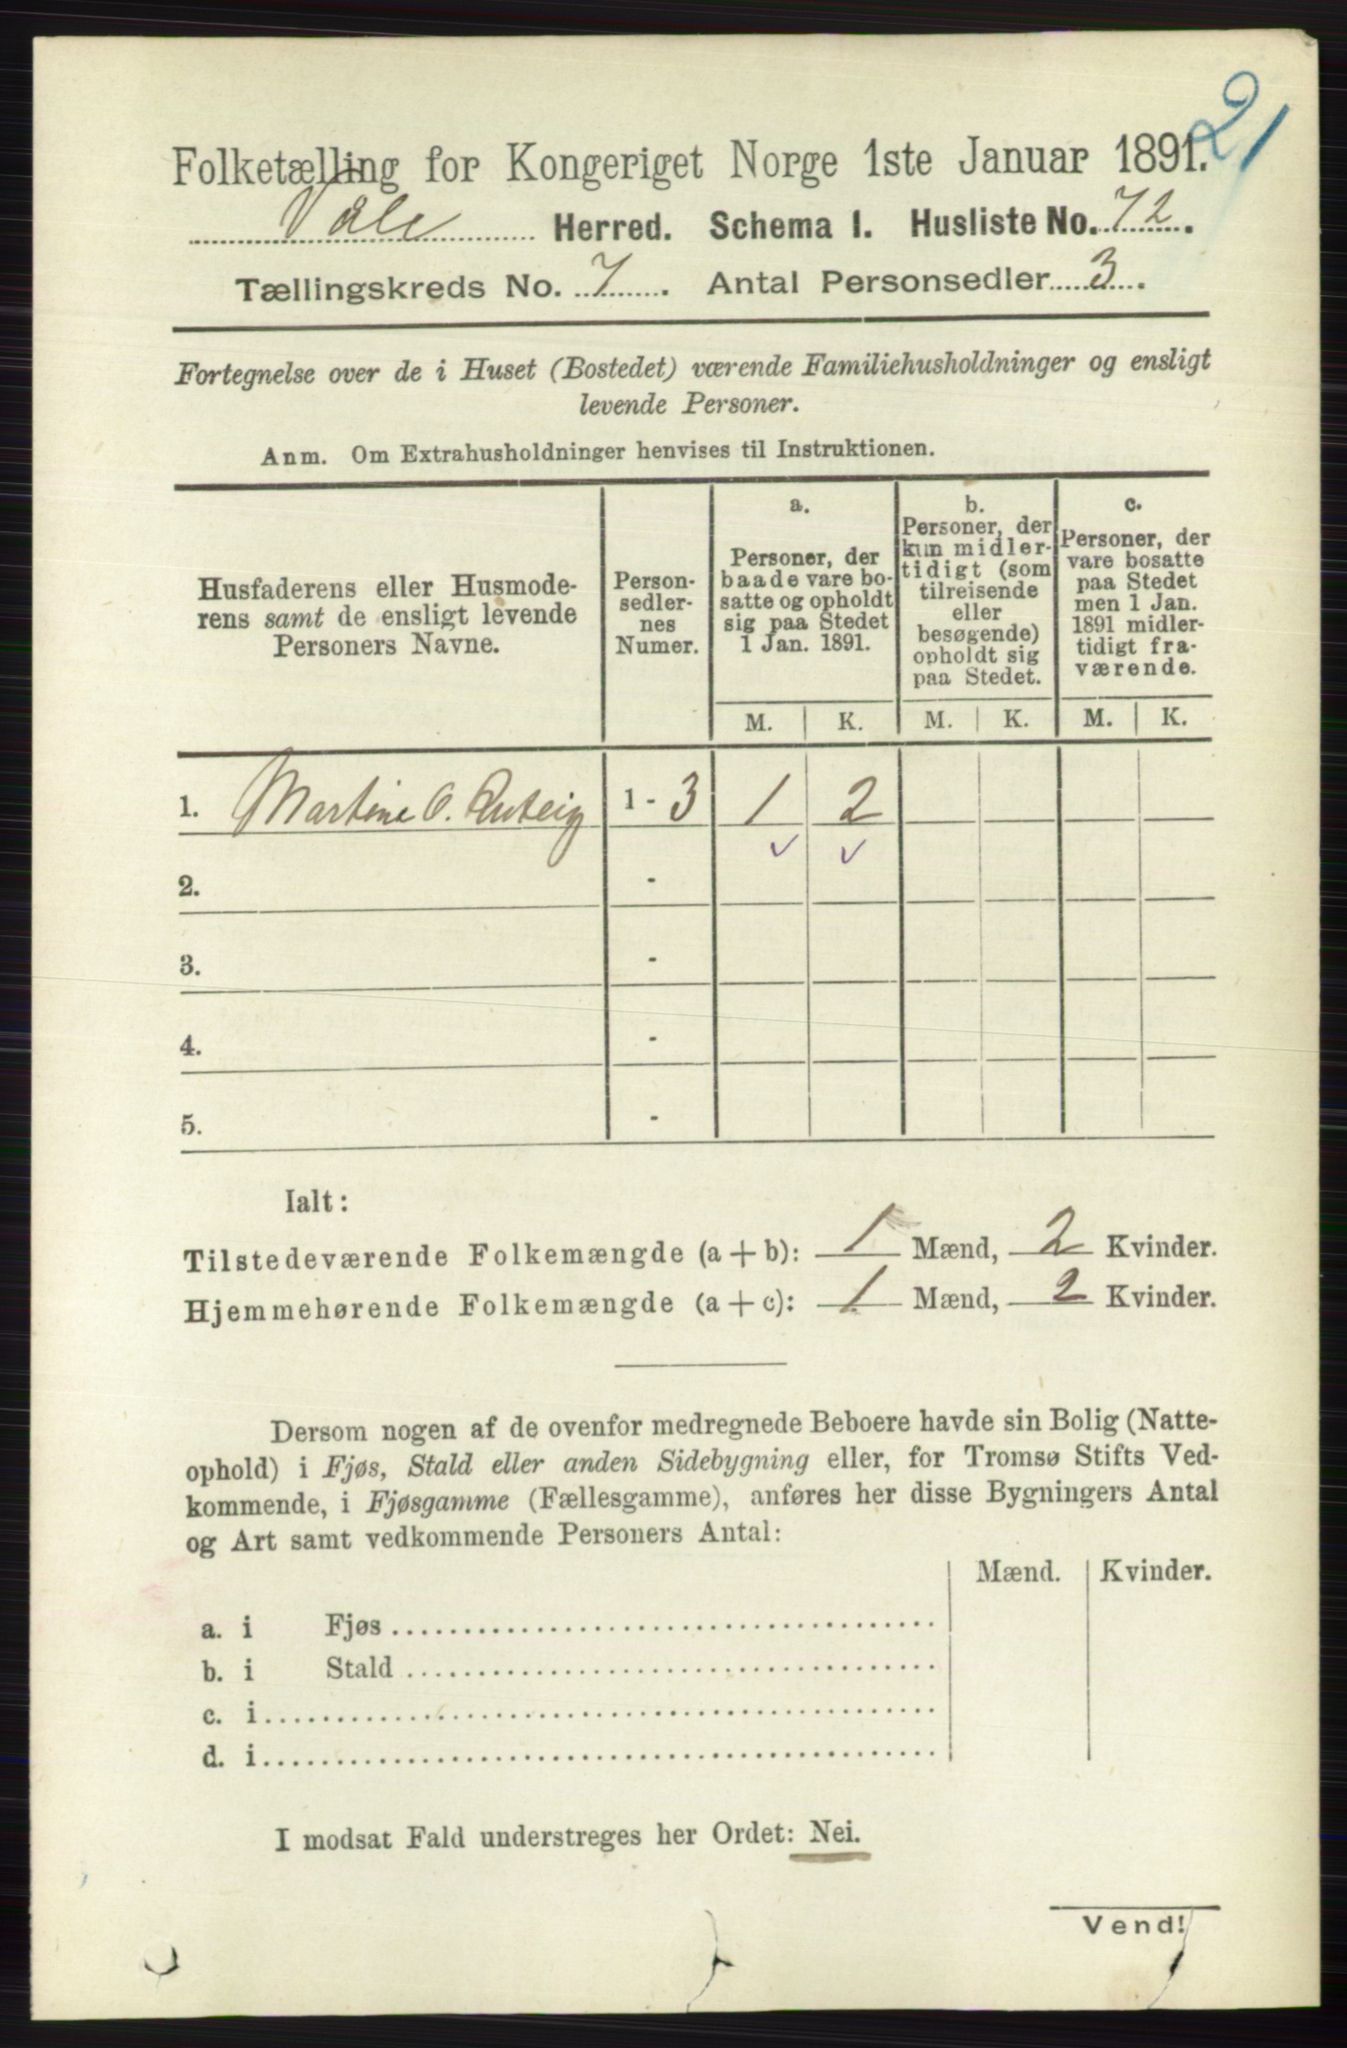 21
Folketælling for Kongeriget Norge 1ste Januar 1891.
Våle Herred. Schema I. Husliste No. 72.
Tællingskreds No. 7. Antal Personsedler 3.
Fortegnelse over de i Huset (Bostedet) værende Familiehusholdninger og ensligt
levende Personer.
Anm. Om Extrahusholdninger henvises til Instruktionen.
Husfaderens eller Husmode-
rens samt de ensligt levende
Personers Navne.
Person-
sedler-
nes
Numer.
a.
Personer, der
baade vare bo-
satte og opholdt
sig paa Stedet
1 Jan. 1891.
b.
Personer, der
kun midler-
tidigt (som
tilreisende
eller
besøgende)
opholdt sig
paa Stedet.
c.
Personer, der
vare bosatte
paa Stedet
men 1 Jan.
1891 midler-
tidigt fra-
værende.
M. K. M. K. M. K.
1. Martine O. 1 - 3 1 2
2. -
3. -
4. -
5. -
Ialt:
Tilstedeværende Folkemængde (a + b): 1 Mænd, 2 Kvinder.
Hjemmehørende Folkemængde (a + c): 1 Mænd, 2 Kvinder.
Dersom nogen af de ovenfor medregnede Beboere havde sin Bolig (Natte-
ophold) i Fjøs, Stald eller anden Sidebygning eller, for Tromsø Stifts Ved-
kommende, i Fjøsgamme (Fællesgamme), anføres her disse Bygningers Antal
og Art samt vedkommende Personers Antal:
Mænd. Kvinder.
a. i Fjøs
b. i Stald
c. i
d. i
I modsat Fald understreges her Ordet: Nei.
Vend!